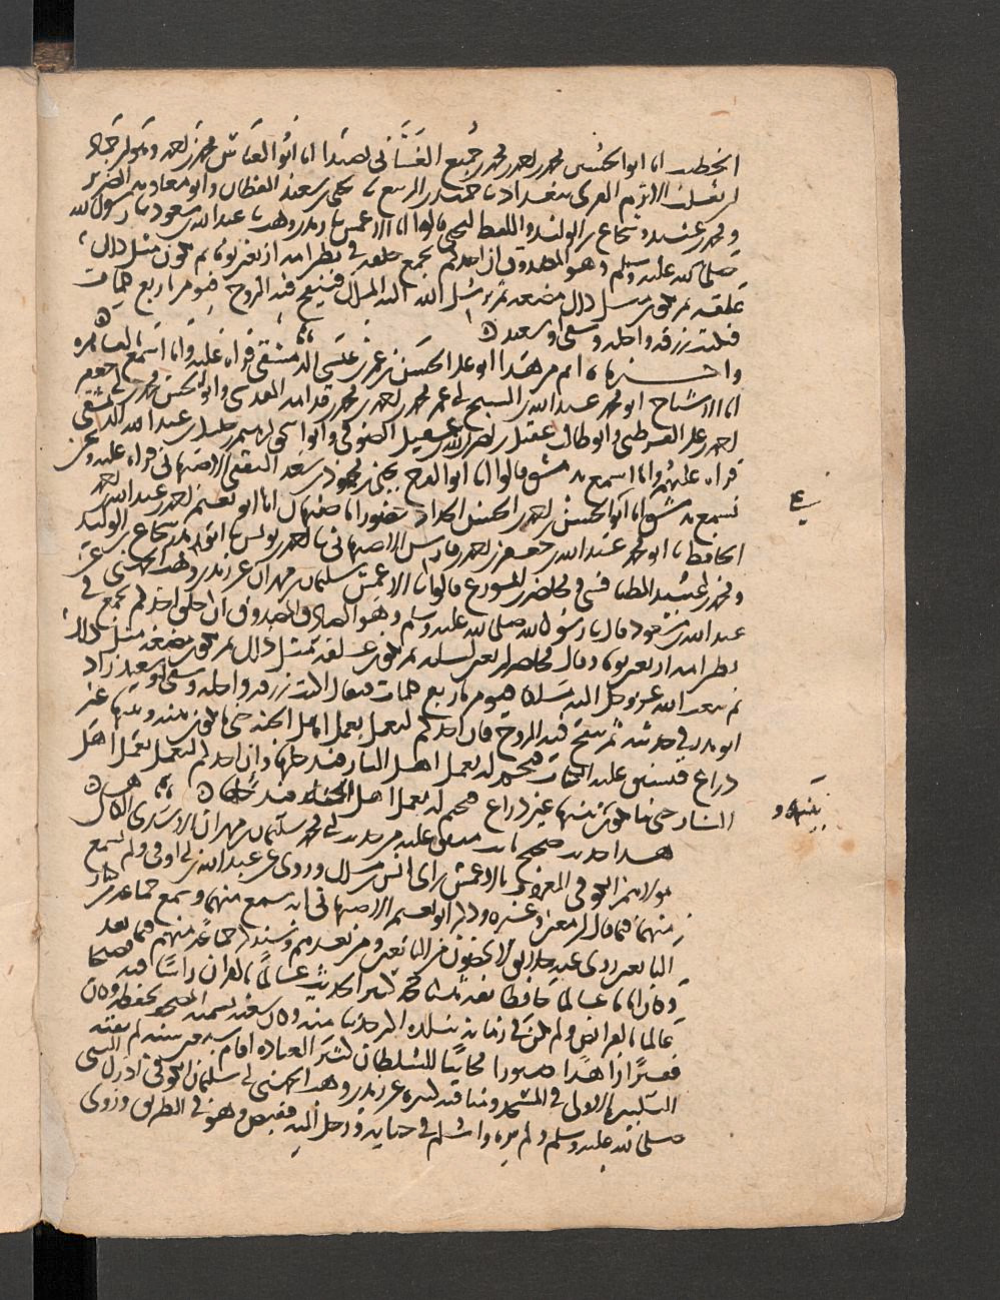 الخطيب انا ابو الحسين محمد بن احمد بن محمد بن جميع الغساني بصيدا انا ابو العباس محمد بن احمد
الاثرم المقرى ببغداد نا حميد بن الربيع نا يحيى بن سعيد القطان وابو معاويه الضرير
ومحمد بن عبيد وشجاع بن الوليد واللفظ ليحيى قالوا انا الاعمش نا زيد بن وهب نا عبد الله بن مسعود نا رسول الله
صلى الله عليه وسلم وهو الصادق المصدوق ان احدكم يجمع خلقه في بطن امه اربعين يوما ثم يكون مثل ذلك
علقه ثم يكون مثل ذلك مضغه ثم يرسل الله اليه الملك فينفخ فيه الروح فيومر باربع كلمات
فيكتب رزقه واجله وشقى او سعيد
واخبرناه ابو علي الحسن بن عمر بن عيسى الدمشقي قراه عليه وانا اسمع بالقاهره
انا الاشياخ ابو محمد عبد الله بن المسيح ابي عمر محمد بن احمد بن محمد بن قدامه المقدسي وابو الحسن محمد بن ابي جعفر
احمد بن علي القرطبي وابو طالب عقيل بن نصر الله بن عقيل الصوفي وابو اسحق ابرهيم بن خليل بن عبد الله الدمشقي
قراه عليهم وانا اسمع بدمشق قالوا انا ابو الفرج يحيى بن محمود بن سعد الثقفي الاصبهاني قراه عليه ونحن
نسمع بدمشق انا ابو الحسن بن احمد بن الحسن الحداد حضورا باصبهان انا ابو نعيم احمد بن عبد الله بن احمد
الحافظ نا ابو محمد عبد الله بن جعفر بن احمد بن فارس الاصبهاني نا احمد بن يونس نا ابو بدر شجاع بن الوليد
ومحمد بن عبيد الطنافسي ومحاضر بن المورع قالوا نا الاعمش سليمان بن مهران عن زيد بن وهب الجهني عن
عبد الله بن مسعود قال نا رسول الله صلى الله عليه وسلم وهو الصادق المصدوق ان خلق احدكم يجمع في
بطن امه اربعين يوما وقال محاضر اربعين ليله ثم يكون علقه مثل ذلك ثم يكون مضغه مثل ذلك
ثم يبعث الله عز وجل اليه ملكا فيومر باربع كلمات فيقال اكتب رزقه واجله وشقى او سعيد زاد
ابو بدر في حديثه ثم ينفخ فيه الروح فان احدكم ليعمل بعمل اهل الجنه حتى ما يكون بينه وبينها غير
ذراع فيسبق عليه الكتاب فيختم له بعمل اهل النار فيدخلها وان احدكم ليعمل بعمل اهل
النار حتى ما يكون بينه وبينها غير ذراع فيختم له بعمل اهل الجنه فيدخلها
هذا حديث صحيح ثابت متفق عليه من حديث ابي محمد سليمان بن مهران الاسدي الكاهلي
مولاهم الكوفي المعروف بالاعمش راى انس بن مالك وروى عن عبد الله بن ابي اوفى ولم يسمع
منهما فيما قال ابن معين وغيره وذكر ابو نعيم الاصبهاني انه سمع منهما وسمع جماعه من كبار
التابعين روى عنه خلايق لا يحصون من التابعين ومن بعدهم
وكان اماما عالما حافظا ثقه ثبتا محدثا كثير الحديث عالما بالقران راسا فيه
عالما بالفرايض ولم يكن في زمانه ببلده اكثر حديثا منه وكان شعبه يسميه المصحف لحفظه وكان
فقيرا زاهدا صبورا مجانبا للسلطان كثير العباده اقام سبعين سنه لم تفته
التكبيره الاولى في المسجد ومناقبه كثيره عن زيد بن وهب الجهني ابي سليمان الكوفي ادرك النبي
صلى الله عليه وسلم ولم يره واسلم في حياته ورحل اليه فقبض وهو في الطريق وروى
بينه و